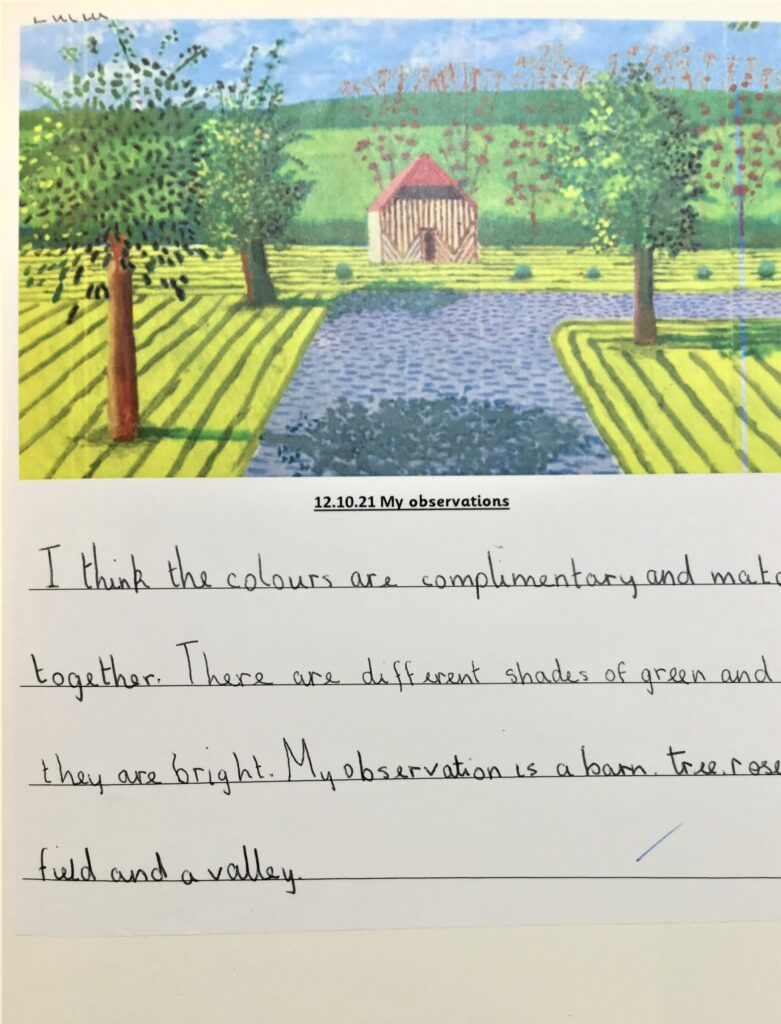 12.10.21 My observations
I think the colours are complimentary and matc
together. There are different shades of green and
they are bright. My observation is a barn. tree. rose
field and a valley.